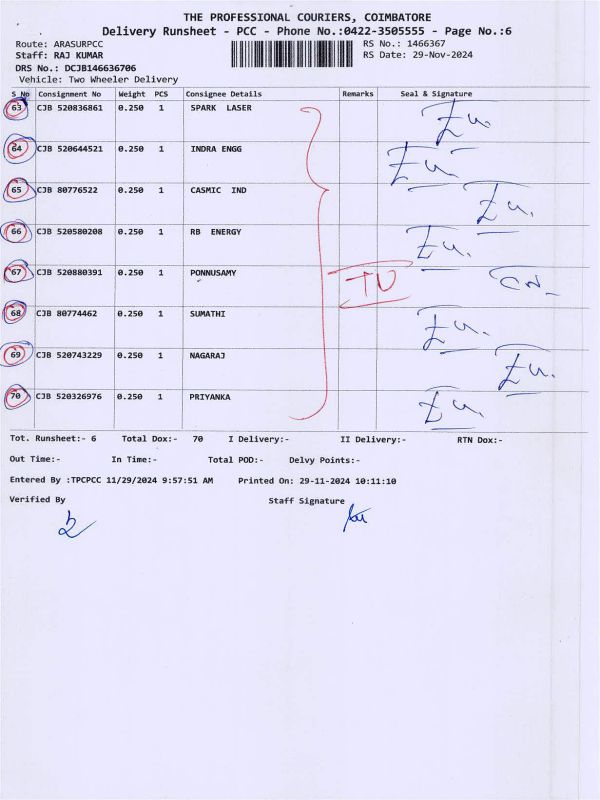 THE PROFESSIONAL COURIERS, COIMBATORE
Delivery Runsheet - PCC - Phone No.:0422-3505555 - Page No.:6
Route: ARASURPCC RS No.: 1466367
Staff: RAJ KUMAR RS Date: 29-Nov-2024
DRS No.: DCJB146636706
Vehicle: Two Wheeler Delivery
S No Consignment No Weight PCS Consignee Details Remarks Seal & Signature
63 CJB 520836861 0.250 1 SPARK LASER
64 CJB 520644521 0.250 1 INDRA ENGG
65 CJB 80776522 0.250 1 CASMIC IND
66 CJB 520580208 0.250 1 RB ENERGY
67 CJB 520880391 0.250 1 PONNUSAMY
68 CJB 80774462 0.250 1 SUMATHI
69 CJB 520743229 0.250 1 NAGARAJ
70 CJB 520326976 0.250 1 PRIYANKA
Tot. Runsheet:- 6 Total Dox:- 70 I Delivery:- II Delivery:- RTN Dox:-
Out Time:- In Time:- Total POD:- Delvy Points:-
Entered By :TPCPCC 11/29/2024 9:57:51 AM Printed On: 29-11-2024 10:11:10
Verified By Staff Signature